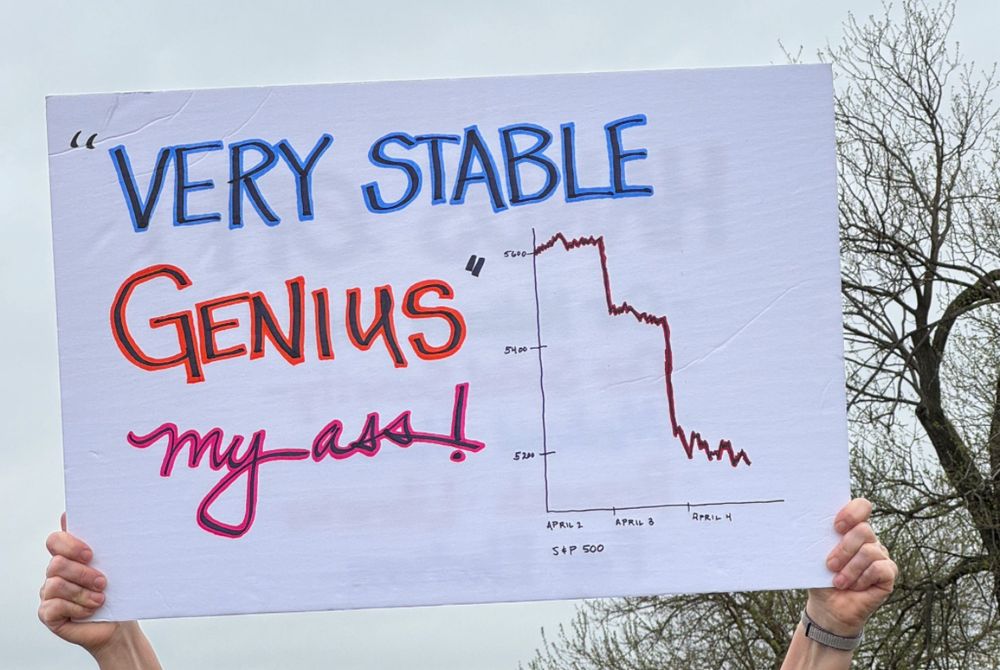 “VERY STABLE
GENIUS”
my ass!
5600
5400
5200
APRIL 2 APRIL 3 APRIL 4
S&P 500